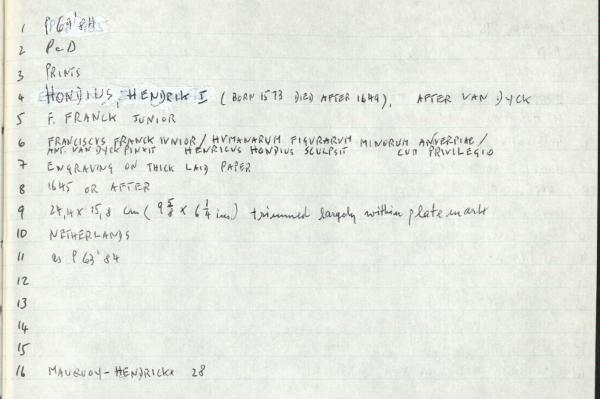 1 P 63'
2 P&D
3 PRINTS
4 HONDIUS, HENDRIK I (BORN 1573 DIED AFTER 1649), AFTER VAN DYCK
5 F. FRANCK JUNIOR
6 FRANCISCVS FRANCK IVNIOR / HVMANARVM FIGVRARVM MINORVM ANVERPIAE /
ANT. VAN DYCK PINXIT HENRICVS HONDIUS SCULPSIT CUM PRIVILEGIO
7 ENGRAVING ON THICK LAID PAPER
8 1645 OR AFTER
9 24,4 x 15,8 cm ( 9 5/8 x 6 1/4 ins) trimmed largely within plate mark
10 NETHERLANDS
11 as P 63'84
12
13
14
15
16 MAUQUOY-HENDRICKX 28